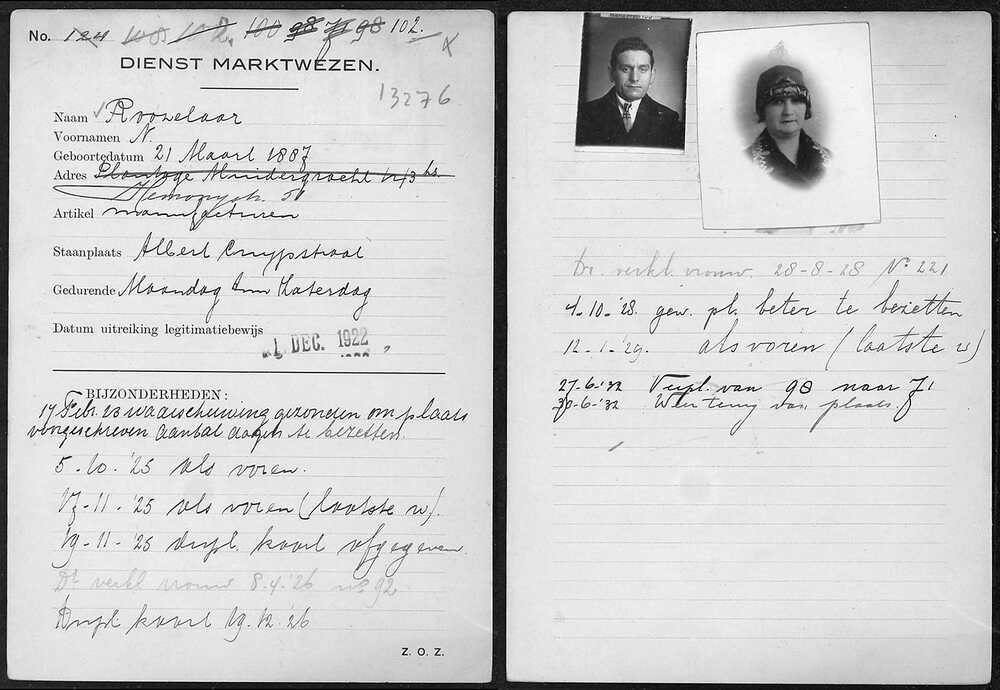 No. 124 108 102 100 98 71 98 102.
DIENST MARKTWEZEN.
13276
Naam Roozelaar
Voornamen N.
Geboortedatum 21 Maart 1887
Adres Plantage Muidergracht hs.
Hemonystr. 51
Artikel manufacturen
Staanplaats Albert Cuypstraat
Gedurende Maandag t/m Zaterdag
Datum uitreiking legitimatiebewijs
1 DEC. 1922
BIJZONDERHEDEN:
17 Febr. 23 waarschuwing gezonden om plaats
voorgeschreven aantal dagen te bezetten.
5-10-'25 als voren.
17-11-'25 als voren (laatste w).
19-11-'25 dupl. kaart afgegeven.
Dr. verkl vrouw 8-4-'26 no 92
Dupl kaart 19.12.'26
Z. O. Z.
Dr. verkl. vrouw. 28-8-28 No 221
4-10-'28. gew. pl. beter te bezetten
12-1-'29. als voren (laatste w)
27-6-'32 Verpl. van 98 naar 71
30-6-'32 Weer terug van plaats